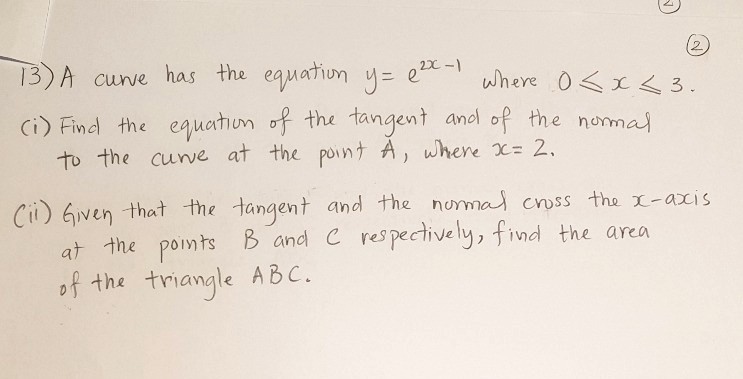 ②
13) A curve has the equation y = e^{2x-1} where 0 ⩽ x ⩽ 3.
(i) Find the equation of the tangent and of the normal
to the curve at the point A, where x = 2.
(ii) Given that the tangent and the normal cross the x-axis
at the points B and C respectively, find the area
of the triangle ABC.